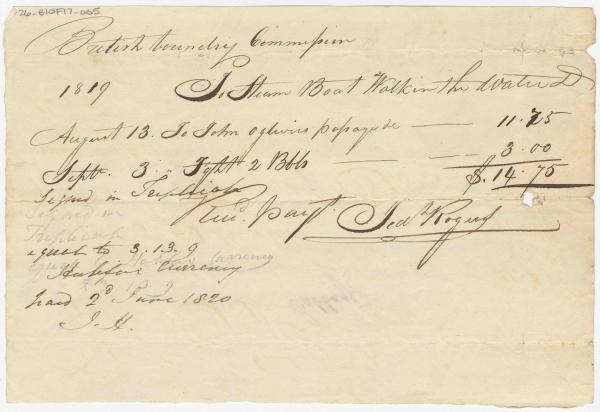 26-B10F17-005
British boundry Commission
1819 To Steam Boat Walk in the dWater D
August 13. To John Ogilvies passage — 11.75
Septr. 3 " To frght 2 Bbls — — 3.00
$.14.75
Signed in Triplicate
Recd. payt. Jedh Rogers
Signed in
Triplicate
equal to 3.13.9
Halifax Currency
paid 2d June 1820
J.H.